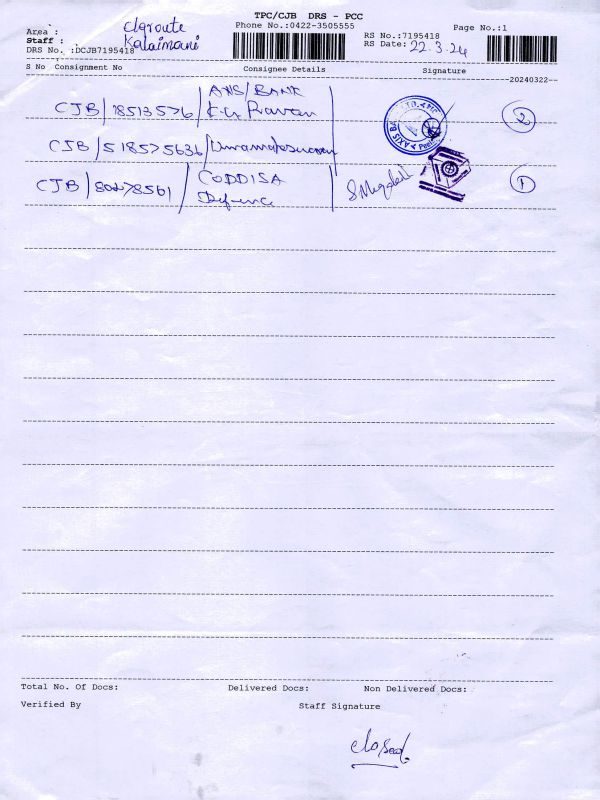 TPC/CJB DRS - PCC
Phone No.:0422-3505555
Page No.:1
Area : clgroute
Staff : Kalaimani
DRS No. :DCJB7195418
RS No.:7195418
RS Date: 22.3.24
S No Consignment No Consignee Details Signature
20240322
AXIS/BANK
CJB/18513576/
2
CJB/518575636/
CJB/80278561/CODDISA
1
Defence
Total No. Of Docs: Delivered Docs: Non Delivered Docs:
Verified By Staff Signature
closed